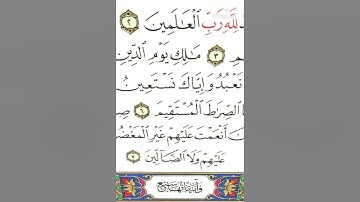 لِلَّهِ رَبِّ ٱلْعَٰلَمِينَ ٢
٣ مَٰلِكِ يَوْمِ ٱلدِّينِ
نَعْبُدُ وَإِيَّاكَ نَسْتَعِينُ
ٱلصِّرَٰطَ ٱلْمُسْتَقِيمَ ٦
أَنْعَمْتَ عَلَيْهِمْ غَيْرِ ٱلْمَغْضُ
عَلَيْهِمْ وَلَا ٱلضَّآلِّينَ ٧